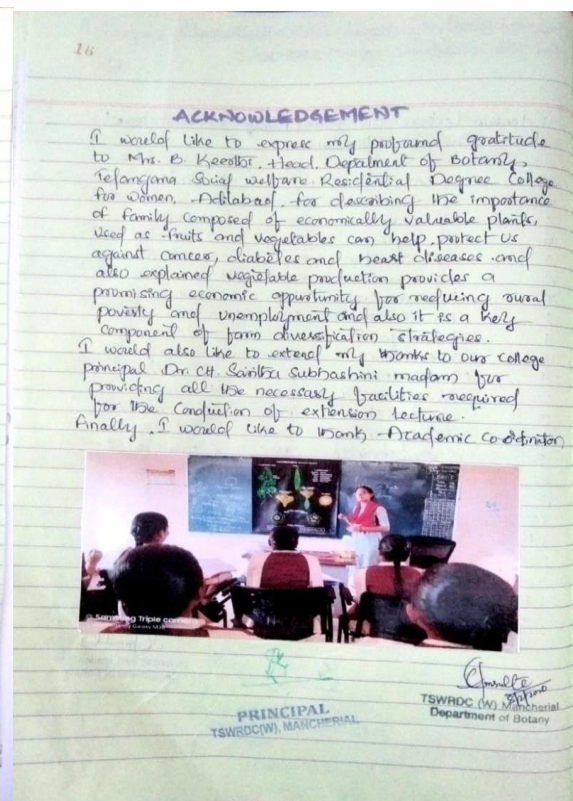 16
ACKNOWLEDGEMENT
I would like to express my profound gratitude
to Mrs. B. Head, Depatment of Botany,
Telangana Social welfare Residential Degree College
for women, Adilabad for describing the importance
of family composed of economically valuable plants,
used as fruits and vegetables can help protect us
against cancer, diabetes and heart diseases and
also explained vegetable production provides a
promising economic oppurtunity for reducing rural
poverty and unemployment and also it is a key
component of farm diversification strategies.
I would also like to extend my thanks to our college
principal Dr. CH. Saritha Subhashini madam for
providing all the necessary facilities required
for the Conduction of extension lecture.
Finally, I would like to thank Academic Co-ordinator
Samsung Triple camera
PRINCIPAL
TSWRDC(W), MANCHERIAL
TSWRDC (W) Mancherial
Department of Botany